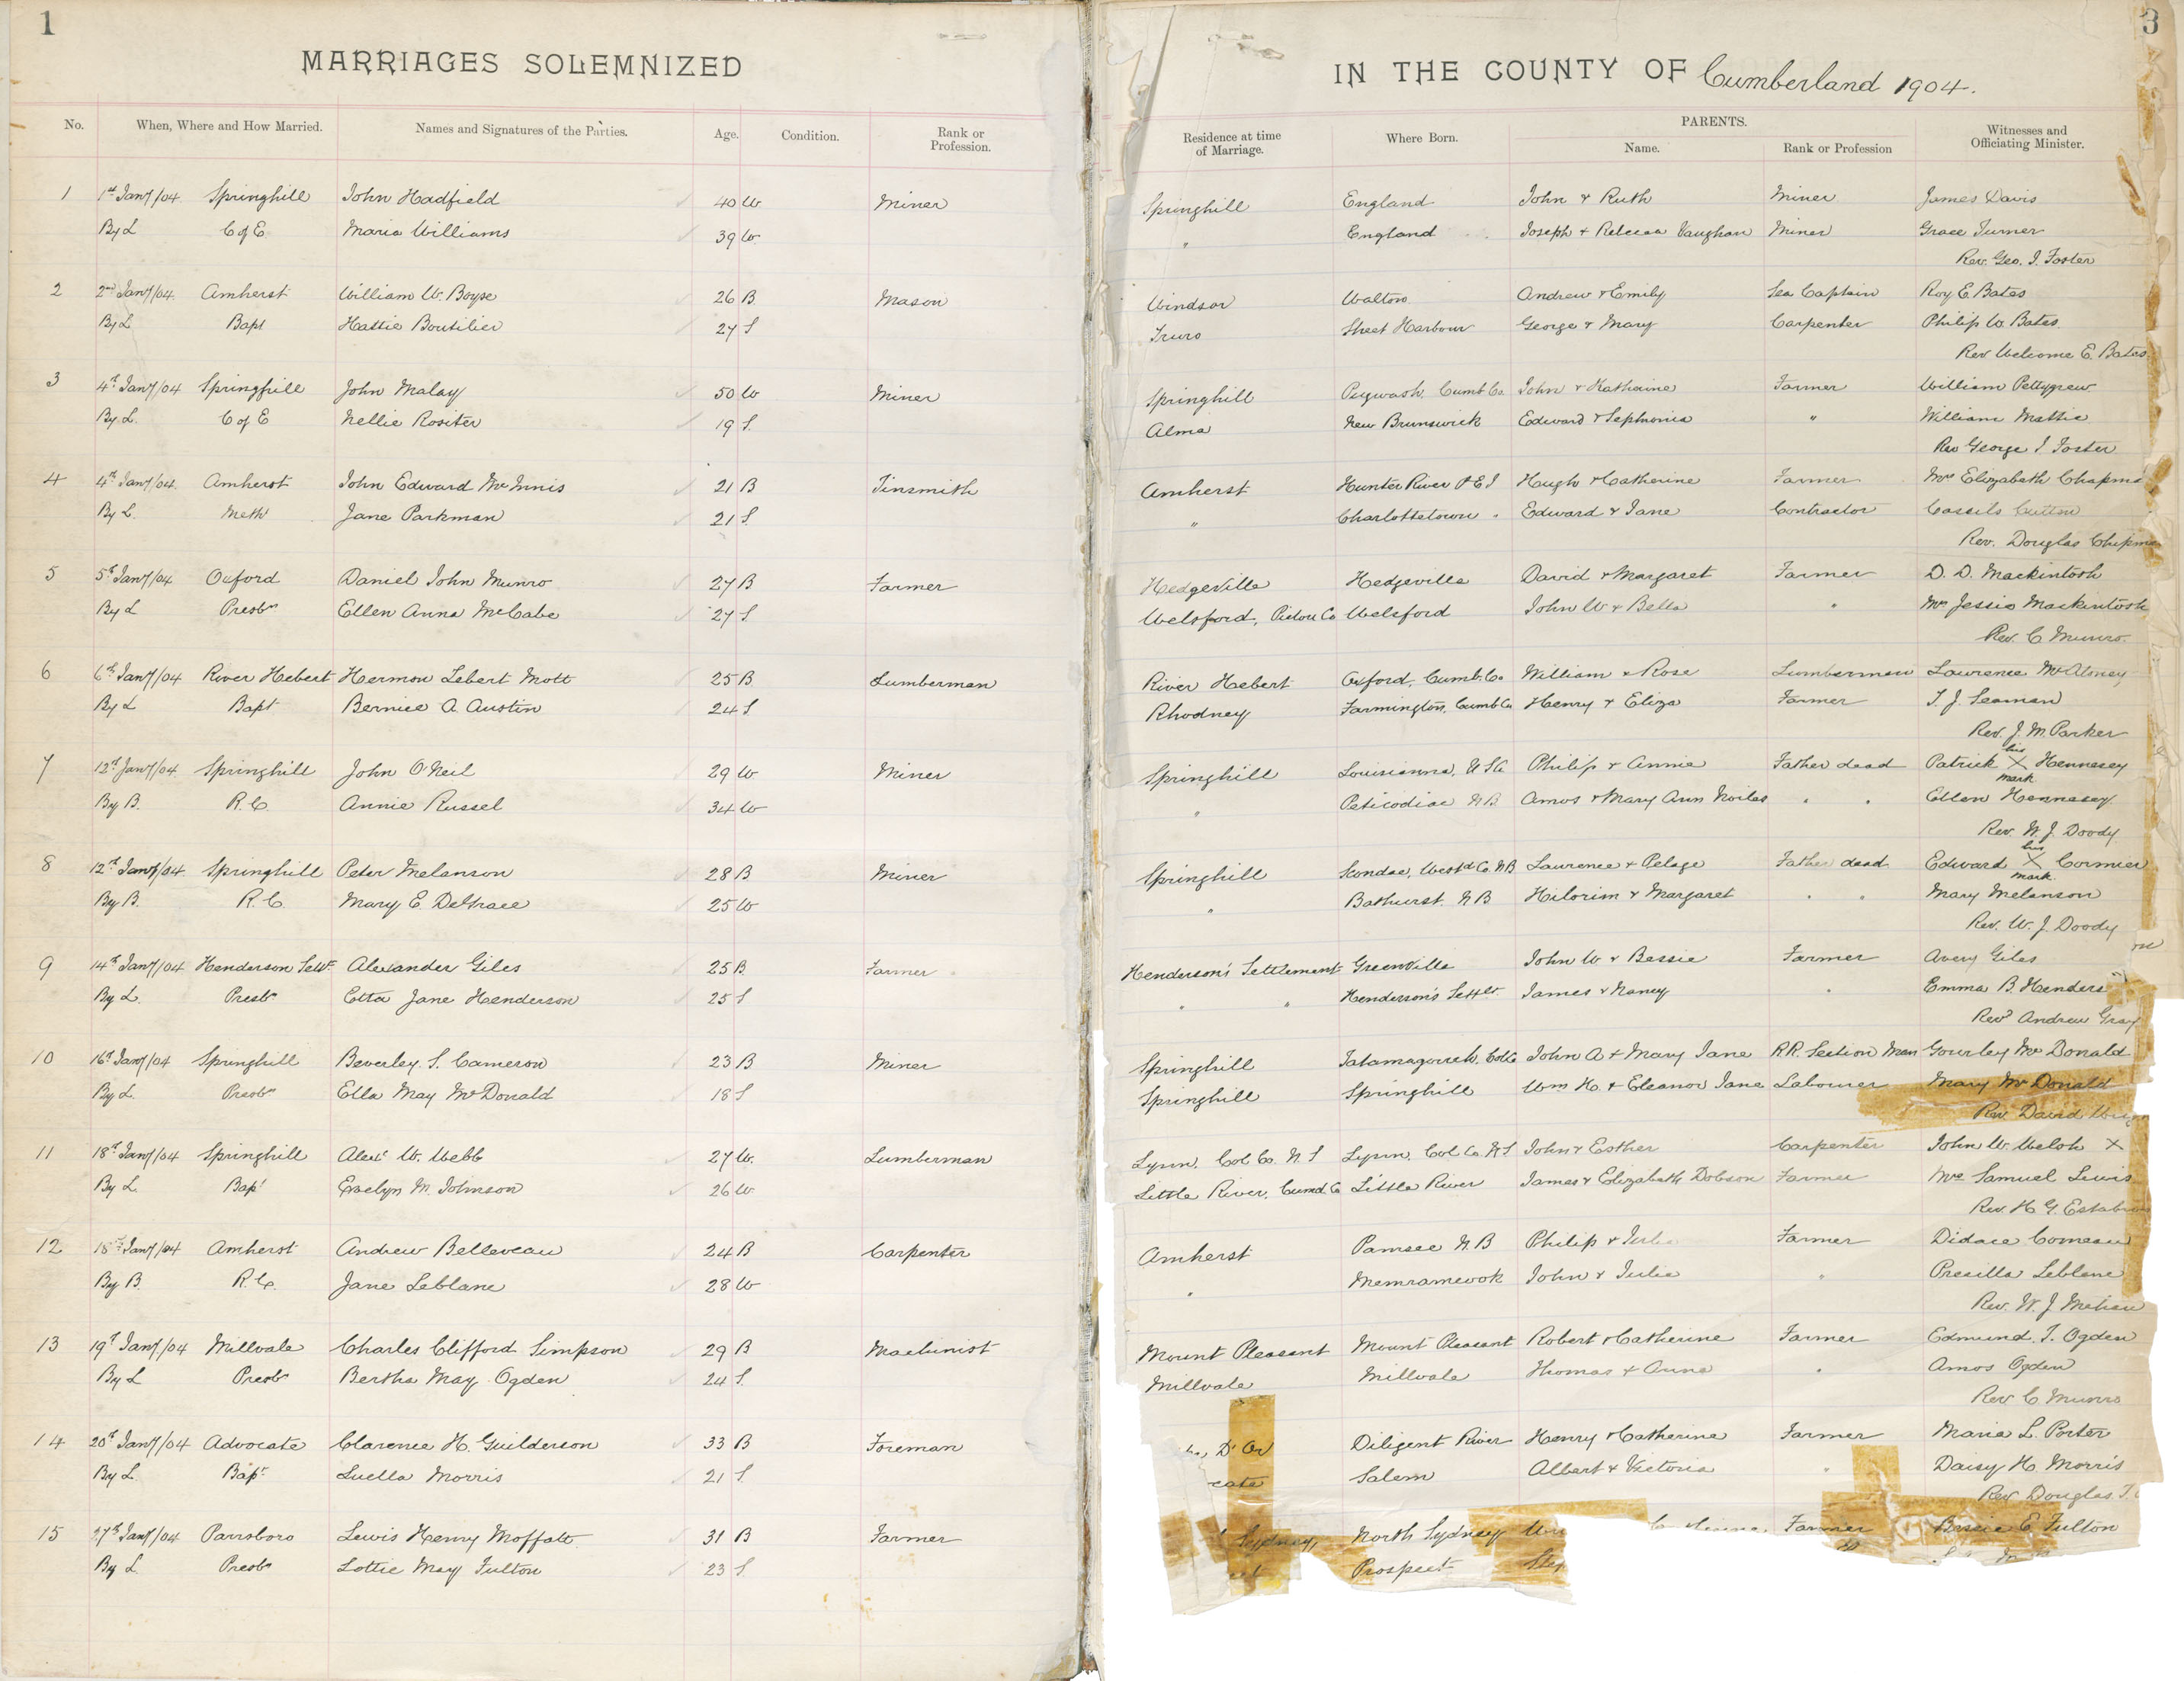 1
3
MARRIAGES SOLEMNIZED IN THE COUNTY OF Cumberland 1904.
No. When, Where and How Married. Names and Signatures of the Parties. Age. Condition. Rank or Profession. Residence at time of Marriage. Where Born. PARENTS. Name. Rank or Profession Witnesses and Officiating Minister.
1 1st Jany/04 Springhill John Hadfield 40 W Miner Springhill England John & Ruth Miner James Davis
By L C of E Maria Williams 39 W " England Joseph + Rebecca Vaughan Miner Grace Turner
Rev. Geo. I. Foster
2 2nd Jany/04. Amherst William W. Boyse 26 B Mason Windsor Walton Andrew & Emily Sea Captain Roy E. Bates
By L Bapt Hattie Boutilier 27 S Truro Sheet Harbour George & Mary Carpenter Philip W. Bates.
Rev Welcome E. Bates
3 4th Jany/04 Springhill John Malay 50 W Miner Springhill Pugwash, Cumb Co. John & Katherine Farmer William Pettygrew
By L. C of E Nellie Rositer 19 S. Alma New Brunswick Edward & Sephonia " William Mattie
Rev George I Foster
4 4th Jany/04. Amherst John Edward McInnis 21 B Tinsmith Amherst Hunter River P E I Hugh & Catherine Farmer Mrs Elizabeth Chapma
By L. Meth Jane Parkman 21 S. " Charlottetown " Edward & Jane Contractor Cassils
Rev. Douglas Chapma
5 5th Jany/04 Oxford Daniel John Munro 27 B Farmer Hedgeville Hedgeville David & Margaret Farmer D. D. Mackintosh
By L Presbn Ellen Anna McCabe 27 S Welsford, Pictou Co Welsford John W & Bella " Mrs Jessie Mackintosh
Rev. C Munro.
6 6th Jany/04 River Hebert Hermon Lebert Mott 25 B. Lumberman River Hebert Oxford, Cumb. Co William & Rose Lumberman Lawrence McAloney
By L Bapt Bernice A. Austin 24 S. Rhodney Farmington, Cumb Co Henry & Eliza Farmer T. J. Seaman
Rev. J. M. Parker
7 12th Jany/04 Springhill John O'Neil 29 W Miner Springhill Louisianna, U.S.A Philip & Annie Father dead Patrick his X mark Hennesey
By B. R.C. Annie Russel 34 W " Peticodiac N.B Amos & Mary Ann Noiles " " Ellen Hennesey
Rev. W. J. Doody
8 12th Jany/04. Springhill Peter Melanson 28 B Miner Springhill Scoudac, Westd Co. N.B Laurence & Pelage Father dead Edward his X mark Cormier
By B. R.C. Mary E. DeGrace 25 W " Bathurst. N B Hilorim & Margaret " " Mary Melanson
Rev. W. J. Doody
9 14th Jany/04 Henderson Sett. Alexander Giles 25 B. Farmer Henderson's Settlement Greenville John W & Bessie Farmer Avery Giles
By L. Presbn Etta Jane Henderson 25 S " " Henderson's Settlt. James & Nancy " Emma B. Henders
Revd Andrew Gray
10 16th Jany/04 Springhill Beverley. S. Cameron 23 B Miner Springhill Tatamagouch, Col Co John A & Mary Jane R.R. Section Man Gourley McDonald
By L. Presbn Ella May McDonald 18 S Springhill Springhill Wm H. & Eleanor Jane Labourer Mary McDonald
Rev David
11 18th Jany/04 Springhill Alexr W. Webb 27 W. Lumberman Lynn, Col Co. N. S Lynn, Col Co. N S John & Esther Carpenter John W. Welsh X
By L Bapt Evelyn M. Johnson 26 W. Little River, Cumd. Co Little River James & Elizabeth Dobson Farmer Mrs Samuel Lewis
Rev. H G. Estabroo
12 18th Jany/04 Amherst Andrew Belleveau 24 B Carpenter Amherst Pamsec N.B Philip & Julie Farmer Didace Comeau
By B. R.C. Jane Leblanc 28 W " Memramcook John & Julie " Precilla Leblanc
Rev. W. J Mehan
13 19th Jany/04 Millvale Charles Clifford Simpson 29 B Machinist Mount Pleasant Mount Pleasant Robert & Catherine Farmer Edmund. T. Ogden
By L Presbn Bertha May Ogden 24 S. Millvale Millvale Thomas & Anna " Amos Ogden
Rev C Munro
14 20th Jany/04 Advocate Clarence H. Guilderson 33 B Foreman D'Or Diligent River Henry & Catherine Farmer Maria L. Porter
By L. Bapt Luella Morris 21 S cate Salem Albert & Victoria " Daisy H. Morris
Rev Douglas.
15 27th Jany/04 Parrsboro Lewis Henry Moffatt 31 B Farmer Sydney, North Sydney Farmer Bessie E. Fulton
By L. Presbn Lottie May Fulton 23 S. Prospect